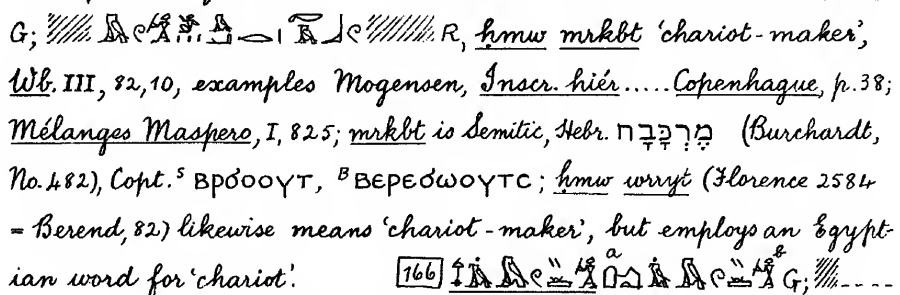 G; R, ḥmw mrkbt ‘chariot-maker’,
Wb. III, 82,10, examples Mogensen, Inscr. hiér..... Copenhague, p.38;
Mélanges Maspero, I, 825; mrkbt is Semitic, Hebr. מֶרְכָּבָה (Burchardt,
No. 482), Copt. ˢ ⲃⲣϭⲟⲟⲩⲧ, ᴮ ⲃⲉⲣⲉϭⲱⲟⲩⲧⲥ; ḥmw wrryt (Florence 2584
= Berend, 82) likewise means ‘chariot-maker’, but employs an Egypt-
ian word for ‘chariot’. 166 a b G; ----